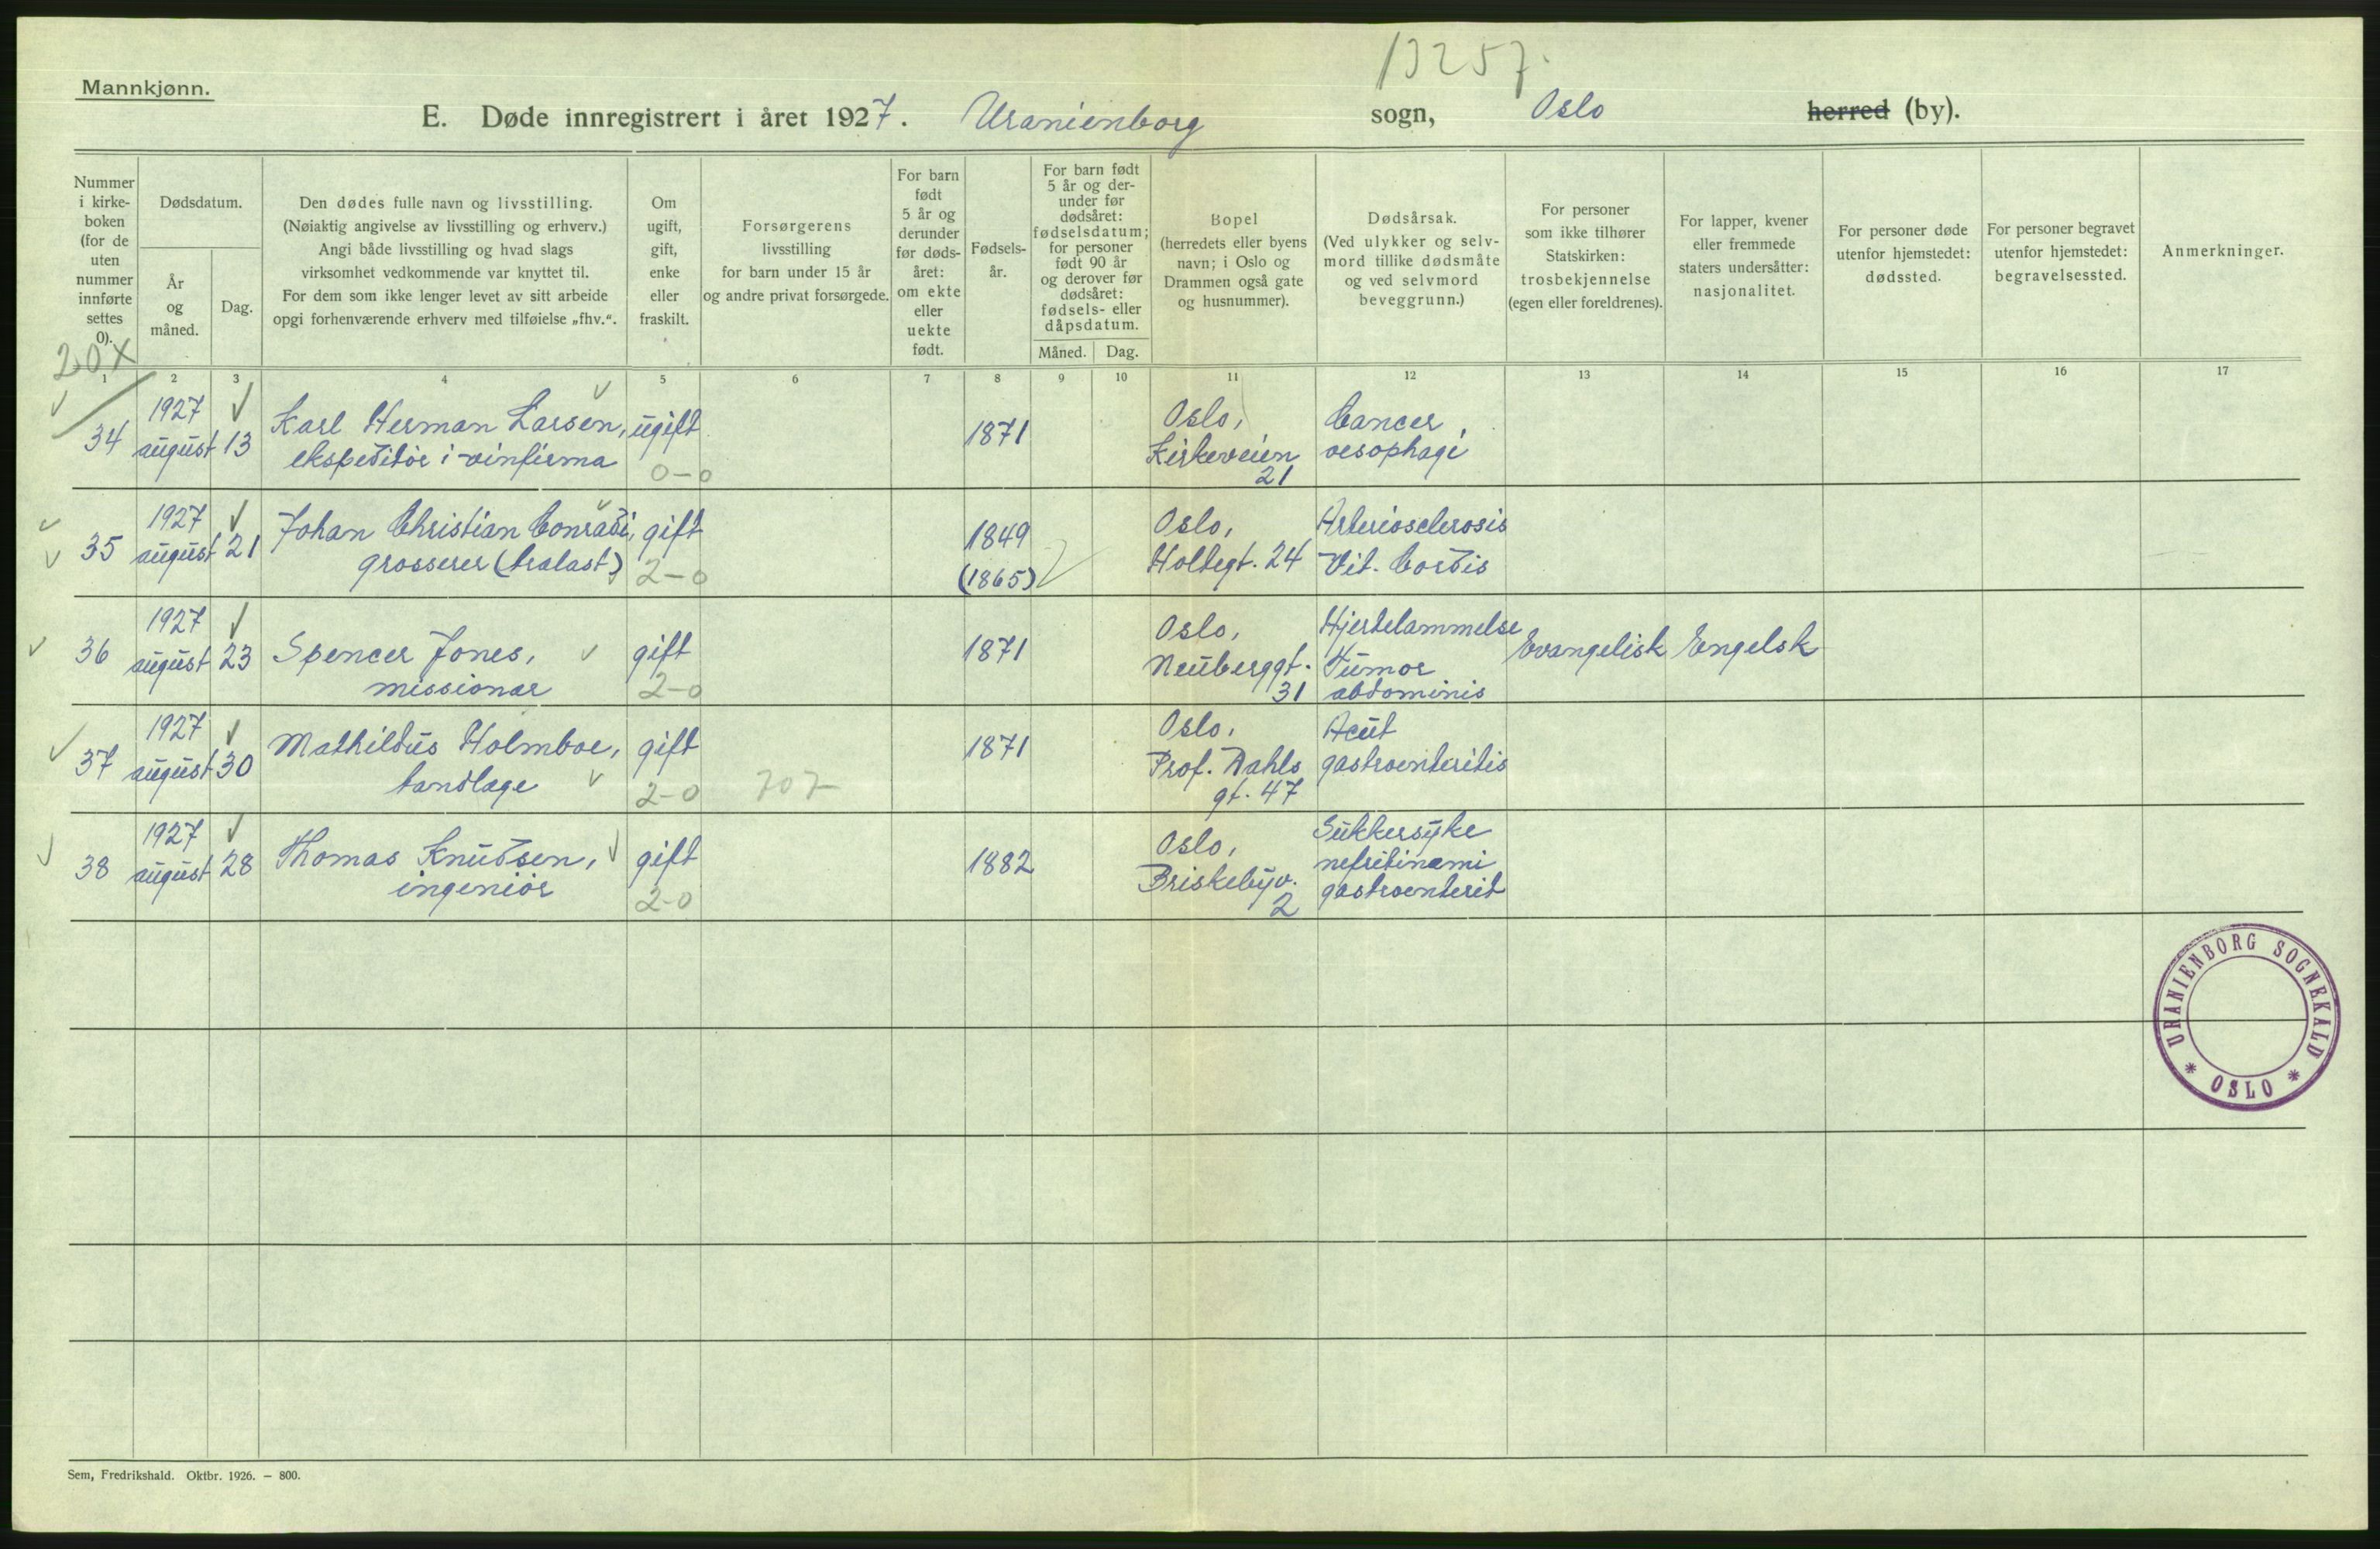 13257.
Mannkjønn.
E. Døde innregistrert i året 1927. Uranienborg sogn, Oslo herred (by).
Nummer i kirke-boken (for de uten nummer innførte settes 0).
Dødsdatum.
År og måned.
Dag.
Den dødes fulle navn og livsstilling.
(Nøiaktig angivelse av livsstilling og erhverv.)
Angi både livsstilling og hvad slags
virksomhet vedkommende var knyttet til.
For dem som ikke lenger levet av sitt arbeide
opgi forhenværende erhverv med tilføielse „fhv.“.
Om ugift, gift, enke eller fraskilt.
Forsørgerens
livsstilling
for barn under 15 år
og andre privat forsørgede.
For barn født 5 år og derunder før døds-året: om ekte eller uekte født.
Fødsels-år.
For barn født 5 år og der-under før dødsåret: fødselsdatum; for personer født 90 år og derover før dødsåret: fødsels- eller dåpsdatum.
Måned.
Dag.
Bopel
(herredets eller byens
navn; i Oslo og
Drammen også gate
og husnummer).
Dødsårsak.
(Ved ulykker og selv-
mord tillike dødsmåte
og ved selvmord
beveggrunn.)
For personer
som ikke tilhører
Statskirken:
trosbekjennelse
(egen eller foreldrenes).
For lapper, kvener
eller fremmede
staters undersåtter:
nasjonalitet.
For personer døde
utenfor hjemstedet:
dødssted.
For personer begravet
utenfor hjemstedet:
begravelsessted.
Anmerkninger.
20x
1 2 3 4 5 6 7 8 9 10 11 12 13 14 15 16 17
34 1927 august 13 Karl Herman Larsen, ugift 1871 Oslo, Cancer
ekspeditør i vinfirma 0-0 Kirkeveien 21 oesophagi
35 1927 august 21 Johan Christian Conradi, gift 1849 Oslo, Arteriosclerosis
grosserer (trelast) 2-0 (1865) Holtegt. 24 Vit. Cordis
36 1927 august 23 Spencer Jones, gift 1871 Oslo, Hjertelammelse Evangelisk Engelsk
missionær 2-0 Neuberggt. 31 Tumor abdominis
37 1927 august 30 Mathildus Holmboe, gift 1871 Oslo, Acut
tandlæge 2-0 707 Prof. Dahls gt. 47 gastroenteritis
38 1927 august 28 Thomas Knudsen, gift 1882 Oslo, Sukkersyke
ingeniør 2-0 Briskebyv. 2 gastroenterit
URANIENBORG SOGNEKALD
* OSLO *
Sem, Fredrikshald. Oktbr. 1926. — 800.